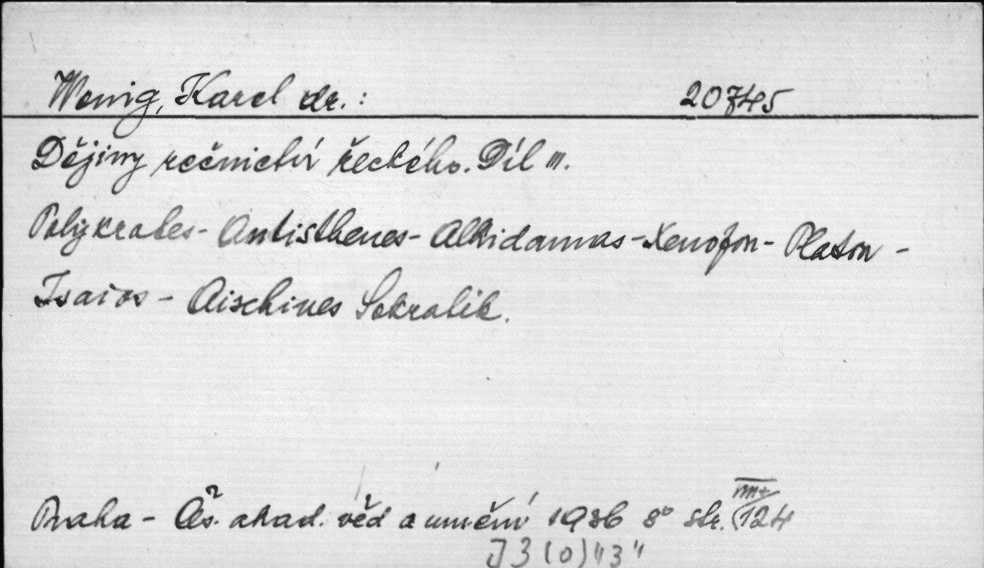 Wenig, Karel dr.: 20745
Dějiny řečnictví řeckého. Díl III.
Polykrates - Antisthenes - Alkidamas - Xenofon - Platon -
Isaios - Aischines Sokratik.
Praha - Čs. akad. věd a umění 1936 8° str. 124
J 3 (0) "3"